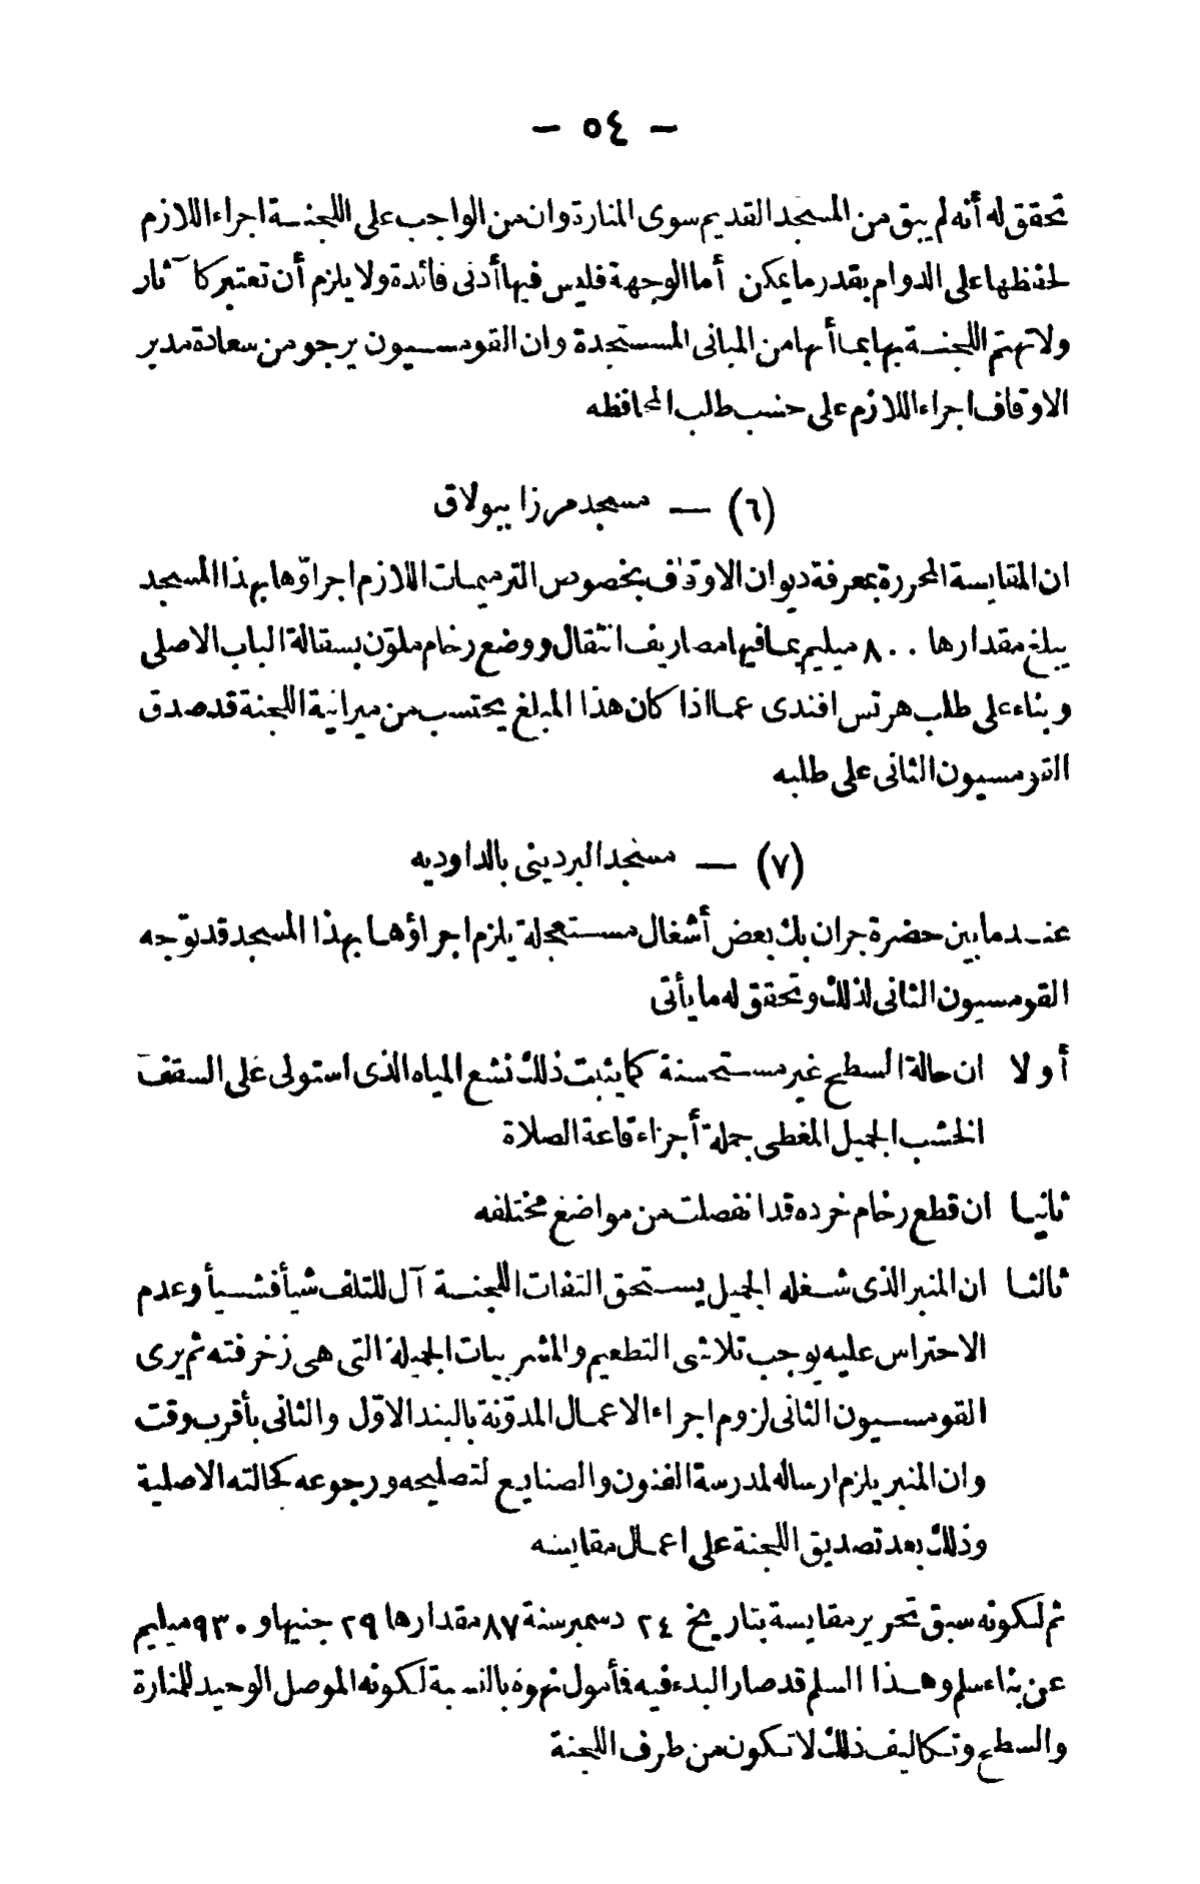 — ٥٤ —
تحقق له أنه لم يبق من المسجد القديم سوى المنارة وان من الواجب على اللجنة اجراء اللازم
لحفظها على الدوام بقدر ما يمكن أما الوجهة فليس فيها أدنى فائدة ولا يلزم أن تعتبر كآثار
ولا تهتم اللجنة بها بما أنها من المبانى المستجدة وان القومسيون يرجو من سعادة مدير
الاوقاف اجراء اللازم على حسب طلب المحافظه
(٦) — مسجد مرزا ببولاق
ان المقايسة المحررة بمعرفة ديوان الاوقاف بخصوص الترميمات اللازم اجراؤها بهذا المسجد
يبلغ مقدارها ٨٠٠ ميليم بما فيها مصاريف انتقال ووضع رخام ملوّن بسقالة الباب الاصلى
وبناء على طلب هرتس افندى عما اذا كان هذا المبلغ يحتسب من ميزانية اللجنة قد صدق
القومسيون الثانى على طلبه
(٧) — مسجد البردينى بالداوديه
عند ما بين حضرة جران بك بعض أشغال مستعجلة يلزم اجراؤها بهذا المسجد قد توّجه
القومسيون الثانى لذلك وتحقق له ما يأتى
أولا ان حالة السطح غير مستحسنة كما يثبت ذلك نشع المياه الذى استولى على السقف
الخشب الجميل المغطى جملة أجزاء قاعة الصلاة
ثانيا ان قطع رخام خرده قد انفصلت من مواضع مختلفه
ثالثا ان المنبر الذى شغله الجميل يستحق التفات اللجنة آل للتلف شيأ فشيأ وعدم
الاحتراس عليه يوجب تلاشى التطعيم والمشربيات الجميلة التى هى زخرفته ثم يرى
القومسيون الثانى لزوم اجراء الاعمال المدوّنة بالبند الاوّل والثانى بأقرب وقت
وان المنبر يلزم ارساله لمدرسة الفنون والصنايع لتصليحه ورجوعه كحالته الاصلية
وذلك بعد تصديق اللجنة على اعمال مقايسه
ثم لكونه سبق تحرير مقايسة بتاريخ ٢٤ دسمبر سنة ٨٧ مقدارها ٢٩ جنيها و ٩٣٠ ميليم
عن بناء سلم وهذا السلم قد صار البدء فيه فأمول نهوه بالنسبة لكونه الموصل الوحيد للمنارة
والسطح وتكاليف ذلك لا تكون من طرف اللجنة